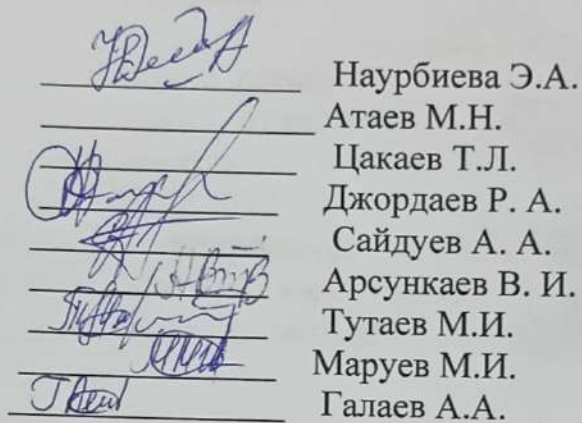 Наурбиева Э.А.
Атаев М.Н.
Цакаев Т.Л.
Джордаев Р. А.
Сайдуев А. А.
Арсункаев В. И.
Тутаев М.И.
Маруев М.И.
Галаев А.А.